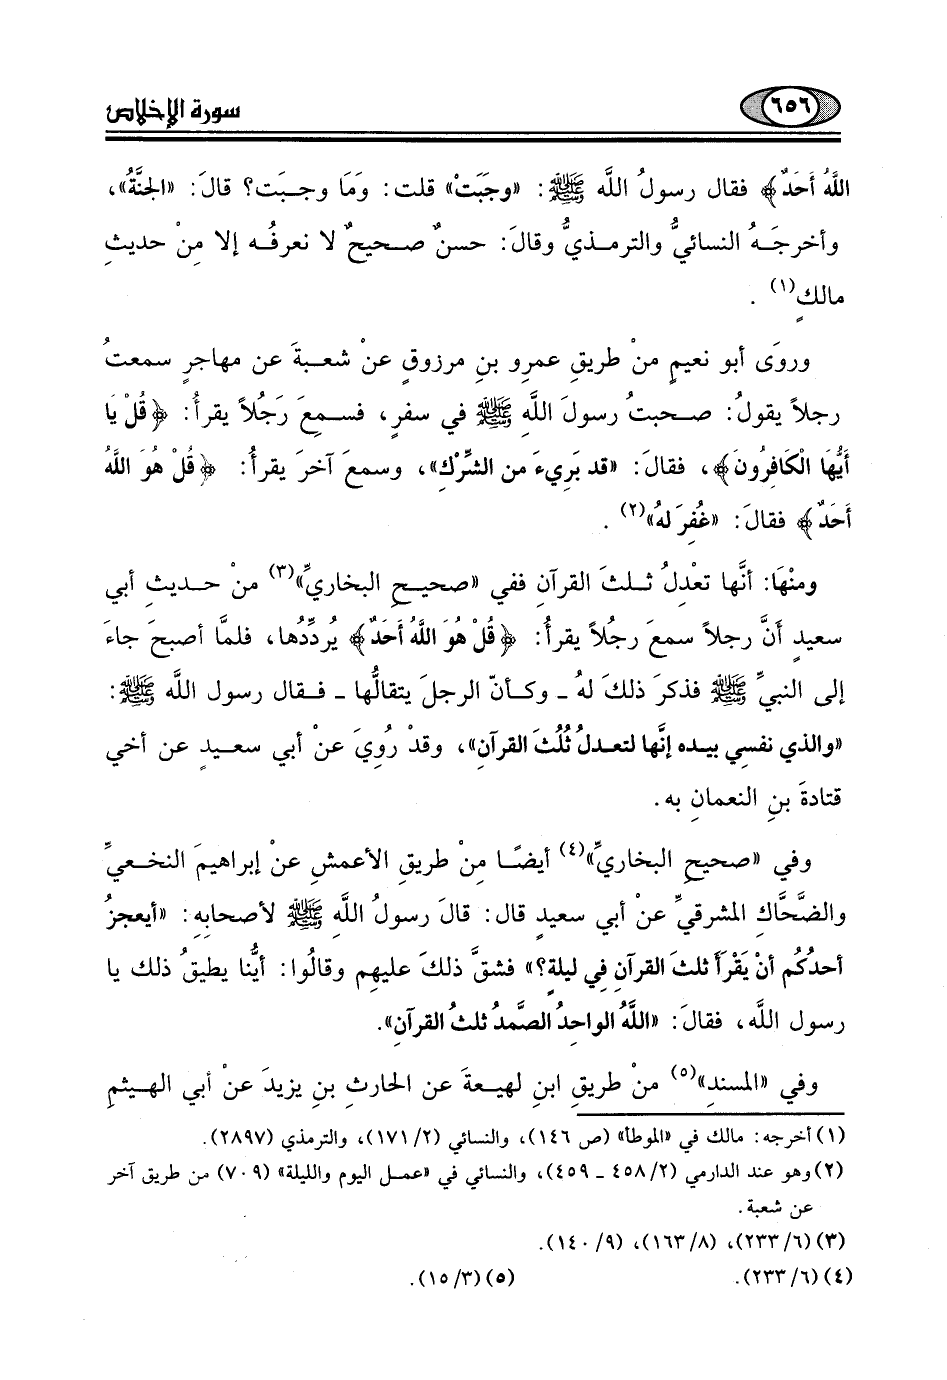 ٦٥٦
سورة الإخلاص
اللَّهُ أَحَدٌ﴾ فقال رسولُ اللَّه ﷺ: «وجَبَتْ» قلت: وَمَا وجَبَت؟ قالَ: «الجنَّةُ»،
وأخرجَهُ النسائيُّ والترمذيُّ وقالَ: حسنٌ صحيحٌ لا نعرفُه إلا مِنْ حديثِ
مالكٍ(١) .
وروَى أبو نعيمٍ منْ طريقِ عمرو بنِ مرزوقٍ عنْ شعبةَ عن مهاجرٍ سمعتُ
رجلاً يقولُ: صحبتُ رسولَ اللَّهِ ﷺ في سفرٍ، فسمِعَ رَجُلاً يقرأُ: ﴿قُلْ يَا
أَيُّهَا الْكَافِرُونَ﴾، فقالَ: «قد بَرِيءَ من الشِّرْك»، وسمعَ آخرَ يقرأُ: ﴿قُلْ هُوَ اللَّهُ
أَحَدٌ﴾ فقالَ: «غُفِرَ لهُ»(٢) .
ومنْهَا: أنَّها تعْدلُ ثلثَ القرآنِ ففي «صحيحِ البخاريِّ»(٣) منْ حديثِ أبي
سعيدٍ أنَّ رجلاً سمعَ رجُلاً يقرأُ: ﴿قُلْ هُوَ اللَّهُ أَحَدٌ﴾ يُردِّدُها، فلمَّا أصبحَ جاءَ
إلى النبيِّ ﷺ فذكرَ ذلكَ لهُ ـ وكأنّ الرجلَ يتقالُّها ـ فقال رسول اللَّه ﷺ:
«والذي نفسِي بيده إنَّها لتعدلُ ثُلُثَ القرآن»، وقدْ رُويَ عنْ أبي سعيدٍ عن أخي
قتادةَ بنِ النعمانِ به.
وفي «صحيحِ البخاريِّ»(٤) أيضًا مِنْ طريقِ الأعمشِ عنْ إبراهيمَ النخعيِّ
والضَّحَّاكِ المشرقيِّ عنْ أبي سعيدٍ قال: قالَ رسولُ اللَّهِ ﷺ لأصحابِهِ: «أيعجزُ
أحدُكُم أنْ يَقْرَأَ ثلثَ القرآنِ فِي ليلةٍ؟» فشقَّ ذلكَ عليهِم وقالُوا: أيُّنا يطيقُ ذلك يا
رسول اللَّه، فقالَ: «اللَّهُ الواحدُ الصَّمدُ ثلثُ القرآنِ».
وفي «المسندِ»(٥) منْ طريقِ ابنِ لهيعةَ عن الحارثِ بنِ يزيدَ عنْ أبي الهيثمِ
(١) أخرجه: مالك في «الموطأ» (ص ١٤٦)، والنسائي (١٧١/٢)، والترمذي (٢٨٩٧).
(٢) وهو عند الدارمي (٤٥٨/٢ ـ ٤٥٩)، والنسائي في «عمل اليوم والليلة» (٧٠٩) من طريق آخر
عن شعبة.
(٣) (٢٣٣/٦)، (١٦٣/٨)، (١٤٠/٩).
(٤) (٢٣٣/٦). (٥) (١٥/٣).